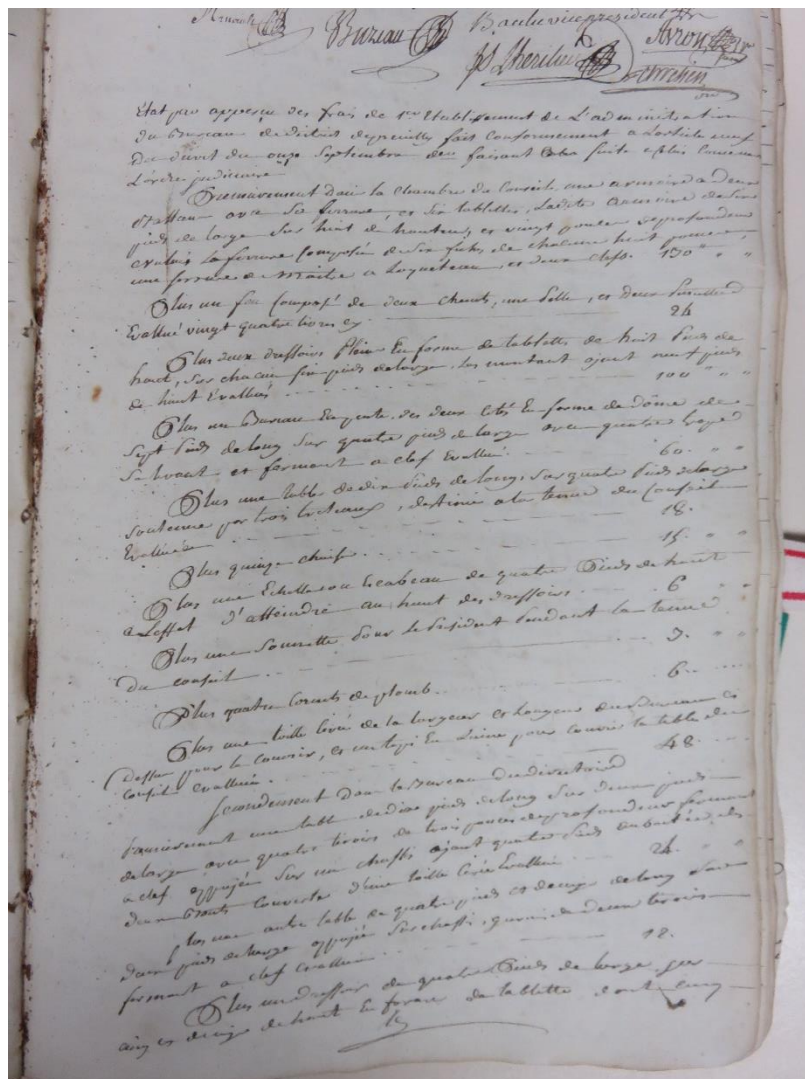 Buzeau B aulu vice president
Avron
Etat par apperçu des frais de 1er Etablissement de L'administration
du Bureau de district fait conformement a L'article neuf
du decret du onze Septembre faisant suite
L'ordre judiciaire
Premierement Dans la Chambre du Conseil, une armoire a Deux
avec Sa ferrure, et Six tablettes, Ladite armoire de Six
pieds de large Sur huit de hauteur, et vingt pouces de profondeur
la ferrure Composée de Six de chacune huit pouces
une serrure de a Loqueteau, et deux clefs. 130 " "
Plus un feu Composé de deux chenets, une Pelle, et Deux
Evallué vingt quatre livres cy 24
Plus deux dressoirs En forme de tablette de huit Pieds de
haut, sur chacun six pieds de large, les montant ajant neuf pieds
de haut Evallués 100 " "
Plus un Bureau des deux coté En forme de dôme de
Sept Pieds de long Sur quatre pieds de large avec quatre
et fermant a clef Evallué 60. " "
Plus une table de dix Pieds de long, Sur quatre Pieds de large
Soutenue par trois treteaux, destinée a la tenue du Conseil
Evalluée 18.
Plus quinze chaises 15. " "
Plus une Echelle ou Escabeau de quatre Pieds de haut
a L'effet d'atteindre au haut des dressoirs. 6 "
Plus une Sonnette pour le President Pendant la tenue
du conseil 3. " "
Plus quatre Cornets de plomb. 6.
Plus une toille Cirée de la largeur et longueur du Bureau
dessus pour le Couvrir, et un tapi En Laine pour couvrir la table du
conseil Evalluée 48.
Secondement Dans le Bureau Du directoire
Premierement une table de dix pieds de long Sur deux pieds
de large avec quatre tiroirs de trois pouces de profondeur fermant
a clef appujée Sur un chassis ajant quatre Pieds
deux bouts Couverte d'une toille Cirée Evallué 24. "
Plus une autre table de quatre pieds et demy de long Sur
deux pieds de large appujée Sur chassi, garnie de deux tiroirs
fermant a clef Evallué 12.
Plus un dressoir de quatre Pieds de large, Sur
cinq et demy de haut En forme de tablette